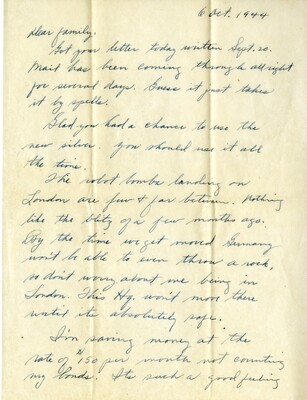 6 Oct. 1944
Dear family.
Got your letter today written Sept. 20.
Mail has been coming through all right
for several days. Guess it just takes
it by spells.
Glad you had a chance to use the
new silver. You should use it all
the time.
The robot bombs landing on
London are few & far between. Nothing
like the blitz of a few months ago.
By the time we get moved Germany
won't be able to even throw a rock,
so don't worry about me being in
London. This Hq. won't move there
until its absolutely safe.
I'm saving money at the
rate of $150 per month not counting
my bonds. Its such a good feeling